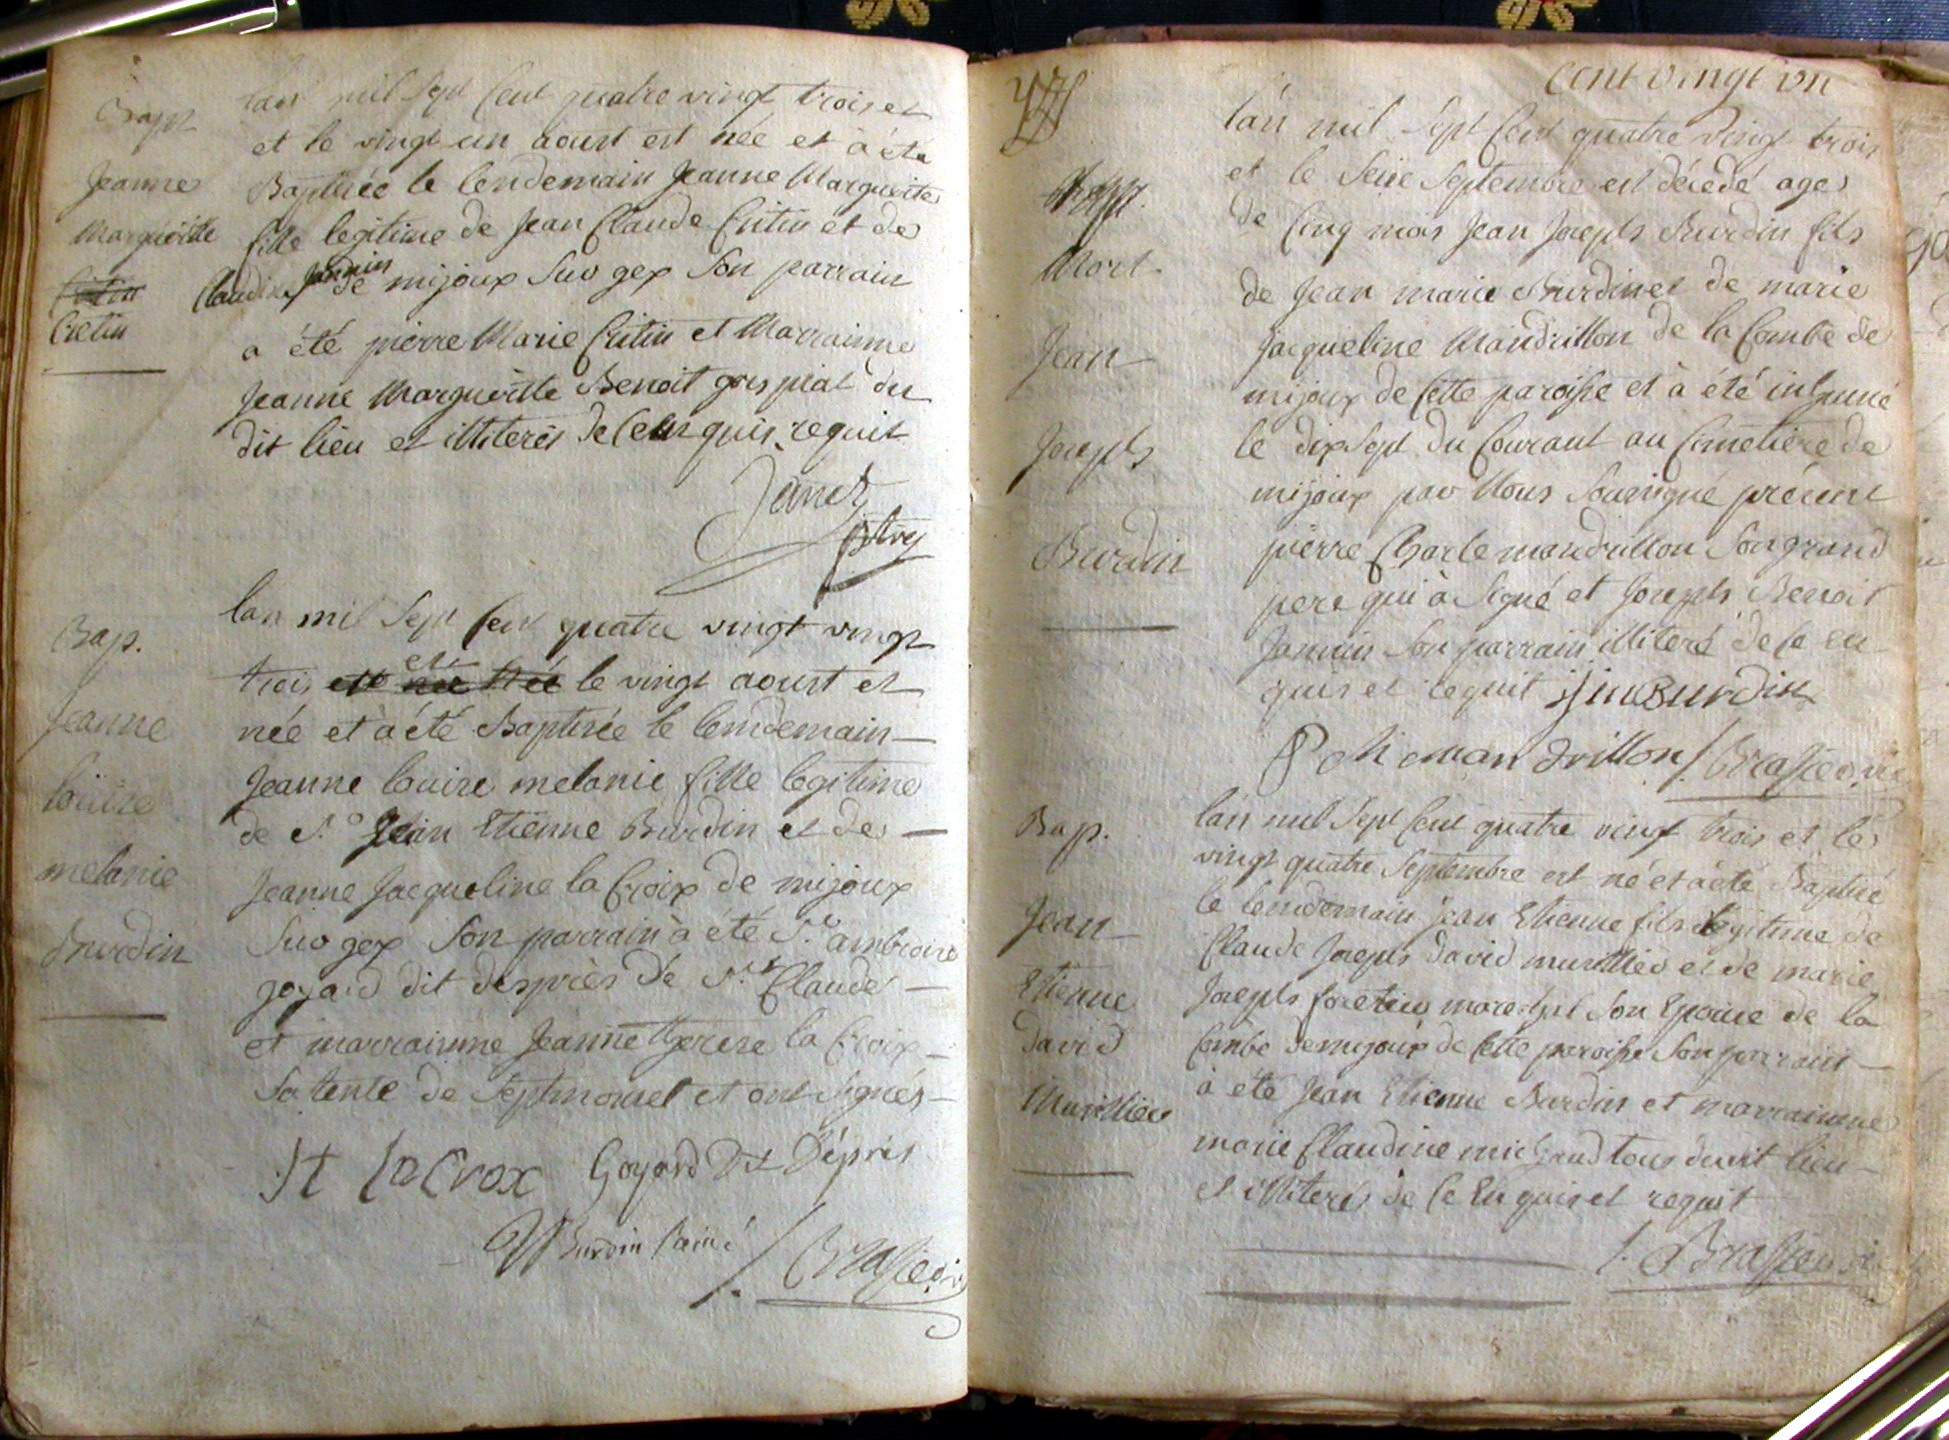 Bapt
Jeanne
Marguëritte
Cretin
lan mil sept Cent quatre vingt trois et
et le vingt un aoust est née et à été
Baptisée le lendemain Jeanne Marguerite
fille legitime de Jean Claude Critin et de
Claudine Jannin de mijoux sur gex son parrain
a été pierre Marie Critin et Marrainne
Jeanne Marguëritte Benoit gros piat du
dit lieu et illiterés de ce enquis requit
Bap.
Jeanne
louise
melanie
Burdin
lan mil sept cent quatre vingt vingt
trois et le vingt aoust est
née et à été Baptisée le lendemain
Jeanne louise melanie fille legitime
de S.r Jean Etienne Burdin et de
Jeanne Jacqueline la Croix de mijoux
sur gex son parrain à été S.r ambroise
goyard dit desprès de S.t Claude
et marrainne Jeanne therese la Croix
sa tente de septmoncel et ont signés
JT laCrox Goyard Dt Déprés
Burdin l'ainé
Cent vingt un
Mort
Jean
Joseph
Burdin
l'an mil sept Cent quatre vingt trois
et le seise Septembre est décedé age
de Cinq mois Jean Joseph Burdin fils
de Jean marie Burdin et de marie
Jacqueline Mandrillon de la Combe de
mijoux de Cette paroisse et à été inhumé
le dix sept du Courant au Cimetiere de
mijoux par Nous sousigné présent
pierre Charle mandrillon son grand
pere qui à signé et Joseph Benoit
Jannin son parrain illiteré de ce en
quis et requit jjmBurdin
P Ch mandrillon
Bap.
Jean
Etienne
David
Murillier
lan mil sept Cent quatre vingt trois et le
vingt quatre Septembre est né et à été Baptisé
le lendemain Jean Etienne fils legitime de
Claude Joseph david murillier et de marie
Joseph son Epouse de la
Combe de mijoux de Cette paroisse son parrain
à été Jean Etienne Burdin et marrainne
marie Claudine michaud tous du dit lieu
et illiterés de ce En quis et requit